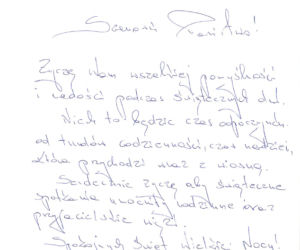 Szanowni Państwo!
Życzę Wam wszelkiej pomyślności
i radości podczas świątecznych dni.
Niech to będzie czas odpoczynku
od trudów codzienności, czas nadziei,
która przychodzi wraz z wiosną.
Serdecznie życzę aby świąteczne
spotkania umocniły rodzinne oraz
przyjacielskie więzi.
Spokojnych Świąt Wielkiej Nocy!